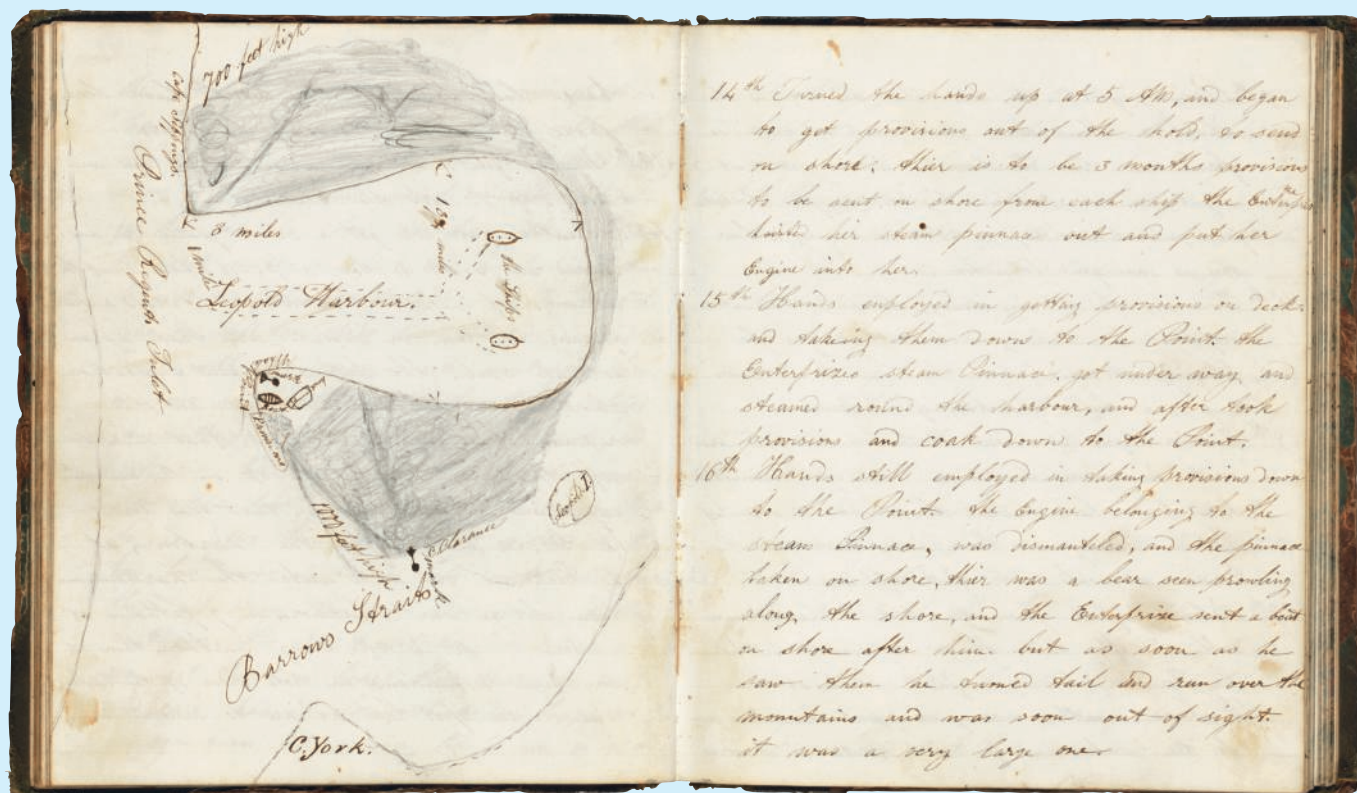 700 feet high
Cape Seppings
Prince Regents Inlet
3 miles
1 mile
1 1/4 miles
the Ships
Leopold Harbour.
Leopolds I.
1000 feet high
C Clarence
Barrows Straits
C. York.
14th Turned the hands up at 5 AM, and began
to get provisions out of the hold, to send
on shore; thier is to be 3 months provisions
to be sent on shore from each ship the
hoisted her steam pinnace out and put her
Engine into her.
15th Hands employed in getting provisions on deck
and takeing them down to the Point the
Enterprizes steam Pinnace got under way and
steamed round the harbour, and after took
provisions and coals down to the Point.
16th Hands still employed in taking provisions down
to the Point. the Engine belonging to the
steam Pinnace, was dismanteled, and the pinnace
taken on shore, thier was a bear seen prowling
along the shore, and the Enterprize sent a boat
on shore after him. but as soon as he
saw them he turned tail and run over the
mountains and was soon out of sight.
it was a very large one.